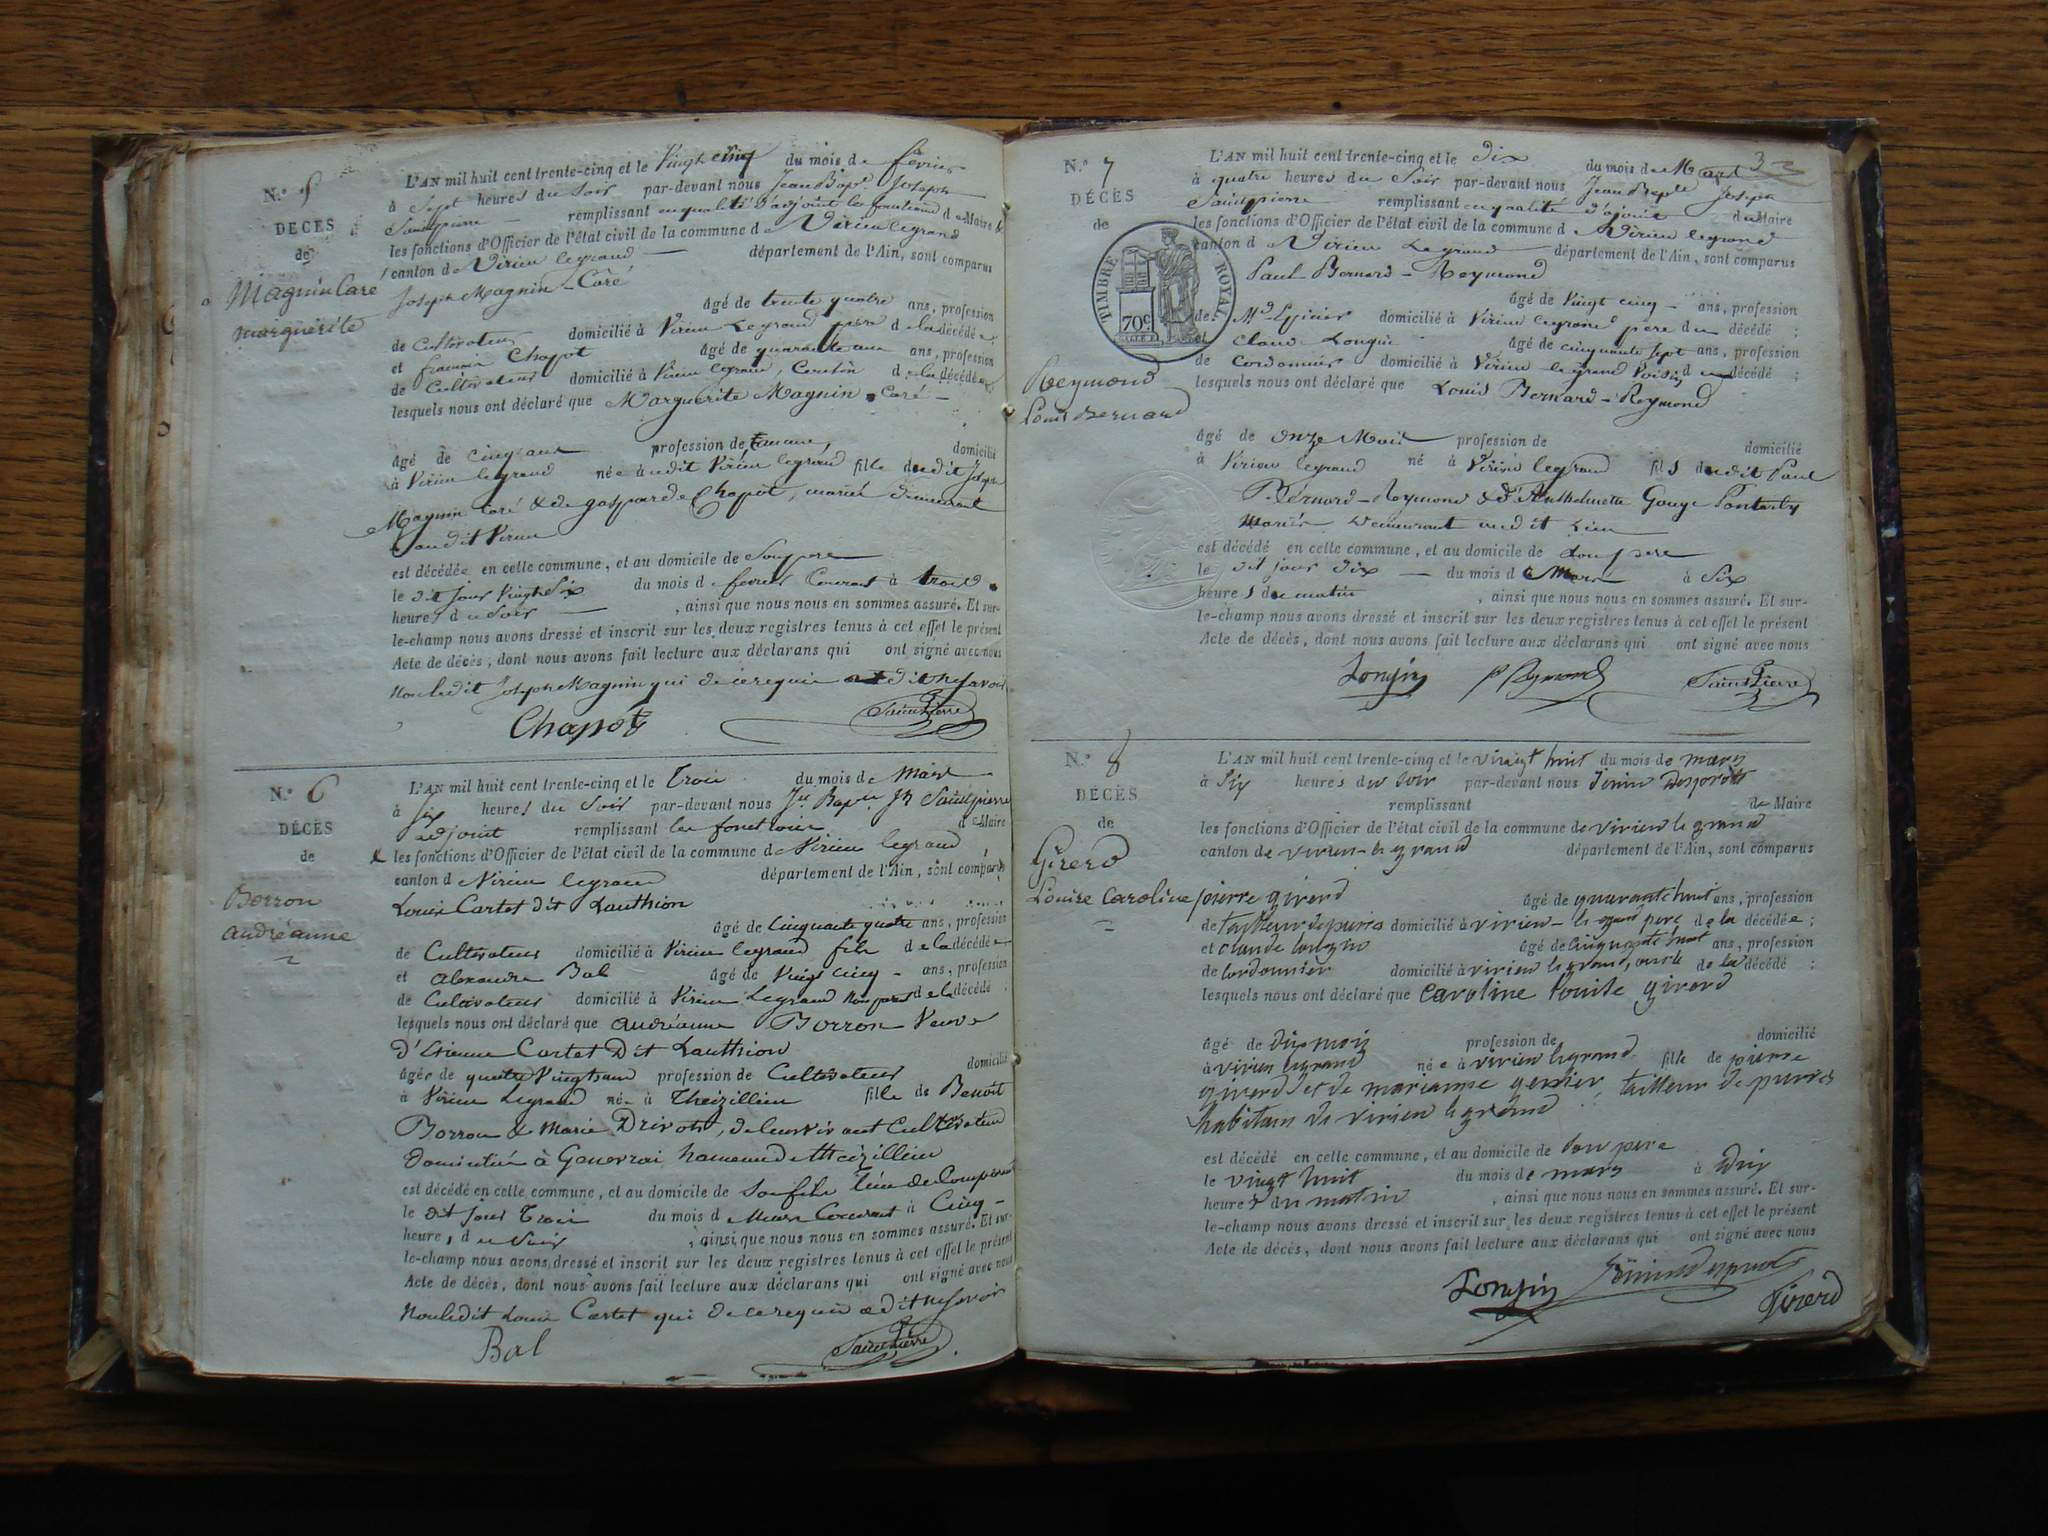 N.º 5
DÉCÈS
de
Magnin Caré
marguerite
L'AN mil huit cent trente-cinq et le Vingt cinq du mois de février
à Sept heures du Soir par-devant nous Jean Bapt. Joseph
Saintpierre remplissant en qualité d'adjoint les fonctions de Maire
les fonctions d'Officier de l'état civil de la commune de Virieu legrand
canton de Virieu legrand département de l'Ain, sont comparus
Joseph Magnin-Caré
âgé de trente quatre ans, profession
de Cultivateur domicilié à Virieu Legrand père de la décédée
et françois Chapot âgé de quarante ans, profession
de Cultivateur domicilié à Virieu legrand, de la décédée
lesquels nous ont déclaré que Marguerite Magnin Caré
âgé de cinq ans profession de domicilié
à Virieu legrand née audit Virieu legrand fille dudit Joseph
Magnin Caré & de gasparde Chapot, mariés demeurant
audit Virieu
est décédée en cette commune, et au domicile de Son pere
le dit jour Vingt Six du mois de février Courant à trois
heures du Soir , ainsi que nous nous en sommes assuré. Et sur-
le-champ nous avons dressé et inscrit sur les deux registres tenus à cet effet le présent
Acte de décès, dont nous avons fait lecture aux déclarans qui ont signé avec nous
Non ledit Joseph Magnin qui de ce requis a dit ne savoir
Chapot Saintpierre
N.º 6
DÉCÈS
de
Borron
andréanne
L'AN mil huit cent trente-cinq et le Trois du mois de Mars
à Six heures du Soir par-devant nous Saintpierre
adjoint remplissant les fonctions de Maire
les fonctions d'Officier de l'état civil de la commune de Virieu legrand
canton d Virieu legrand département de l'Ain, sont comparus
Louis Cartet dit Lauthion
âgé de Cinquante quatre ans, profession
de Cultivateur domicilié à Virieu legrand fils de la décédée
et alexandre Bal âgé de Vingt cinq ans, profession
de Cultivateur domicilié à Virieu Legrand de la décédé
lesquels nous ont déclaré que andréanne Borron Veuve
d'Etienne Cartet Dit Lauthion
âgée de quatre Vingts ans profession de Cultivateur domicilié
à Virieu Legrand née à Theizillieu fille de Benoit
Borron & Marie Drivon, de leur vivant Cultivateurs
domiciliés à hameau de theizillieu
est décédé en cette commune, et au domicile de Son fils
le dit jour Trois du mois d Mars Courant à Cinq
heures du Soir , ainsi que nous nous en sommes assuré. Et sur-
le-champ nous avons dressé et inscrit sur les deux registres tenus à cet effet le présent
Acte de décès, dont nous avons fait lecture aux déclarans qui ont signé avec nous
Non ledit Louis Cartet qui de ce requis a dit ne savoir
Bal Saintpierre
32
N.º 7
DÉCÈS
de
TIMBRE ROYAL
70c
Reymond
Louis Bernard
L'AN mil huit cent trente-cinq et le dix du mois de Mars
à quatre heures du Soir par-devant nous Jean Bapte Joseph
Saintpierre remplissant en qualité d'ajoint du Maire
les fonctions d'Officier de l'état civil de la commune d Virieu legrand
canton d Virieu Legrand département de l'Ain, sont comparus
Paul-Bernard-Reymond
âgé de Vingt cinq ans, profession
de Md. Epicier domicilié à Virieu legrand pere du décédé ;
et Claude Longin âgé de cinquante sept ans, profession
de Cordonnier domicilié à Virieu legrand Voisin du décédé ;
lesquels nous ont déclaré que Louis Bernard-Reymond
âgé de onze Mois profession de domicilié
à Virieu legrand né à Virieu legrand fils dudit Paul
Bernard-Reymond & d'Anthelmette Gouge
Mariés demeurant audit Lieu
est décédé en cette commune, et au domicile de Son pere
le dit jour dix du mois de Mars à Six
heures du matin , ainsi que nous nous en sommes assuré. Et sur-
le-champ nous avons dressé et inscrit sur les deux registres tenus à cet effet le présent
Acte de décès, dont nous avons fait lecture aux déclarans qui ont signé avec nous
Longin Reymond Saintpierre
N.º 8
DÉCÈS
de
Girerd
Louise Caroline
L'AN mil huit cent trente-cinq et le vingt huit du mois de mars
à Six heures du soir par-devant nous
remplissant de Maire
les fonctions d'Officier de l'état civil de la commune de virieu le grand
canton de virieu-le grand département de l'Ain, sont comparus
pierre girerd
âgé de quarante huit ans, profession
de tailleur de pierres domicilié à virieu-le grand pere de la décédée ;
et claude longin âgé de cinquante huit ans, profession
de Cordonnier domicilié à virieu le grand, de la décédé ;
lesquels nous ont déclaré que Caroline louise girerd
âgé de dix mois profession de domicilié
à virieu legrand née à virieu legrand fille de pierre
girerd et de marianne , tailleur de pierres
habitans de virieu le grand
est décédé en cette commune, et au domicile de Son pere
le vingt huit du mois de mars à dix
heures du matin , ainsi que nous nous en sommes assuré. Et sur-
le-champ nous avons dressé et inscrit sur les deux registres tenus à cet effet le présent
Acte de décès, dont nous avons fait lecture aux déclarans qui ont signé avec nous
Longin Girerd